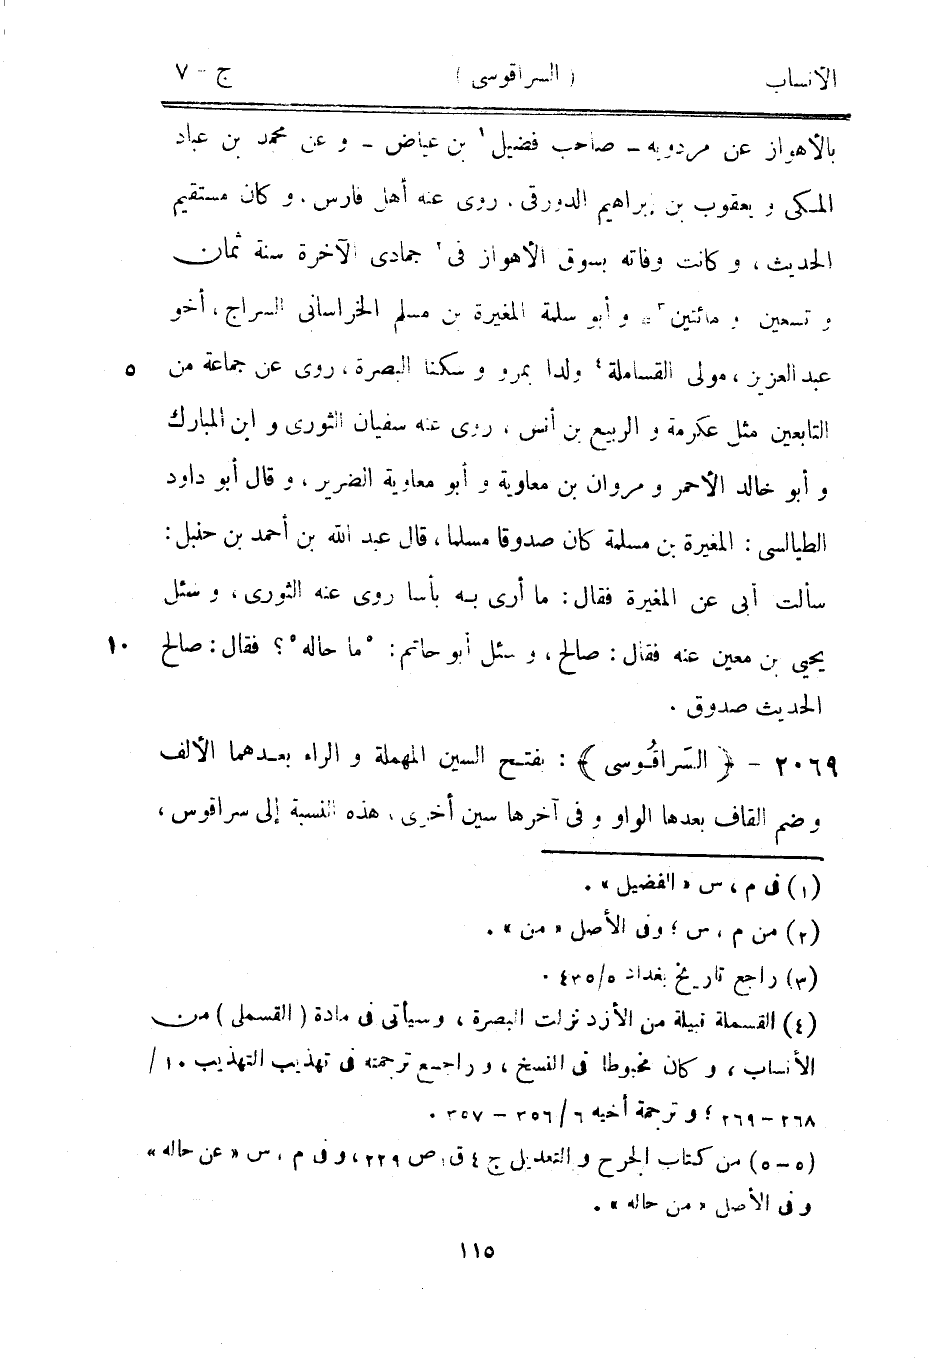 الأنساب ( السراقوسى ) ج - ٧
بالأهواز عن مردويه - صاحب فضيل١ بن عياض - و عن محمد بن عباد
المكى و يعقوب بن إبراهيم الدورقى . روى عنه أهل فارس . و كان مستقيم
الحديث ، و كانت وفاته بسوق الأهواز فى٢ جمادى الآخرة سنة ثمان
و تسعين و مائتين٣ . و أبو سلمة المغيرة بن مسلم الخراسانى السراج ، أخو
عبد العزيز ، مولى القساملة٤ ولدا بمرو و سكنا البصرة ، روى عن جماعة من ٥
التابعين مثل عكرمة و الربيع بن أنس ، روى عنه سفيان الثورى و ابن المبارك
و أبو خالد الأحمر و مروان بن معاوية و أبو معاوية الضرير ، و قال أبو داود
الطيالسى : المغيرة بن مسلمة كان صدوقا مسلما ، قال عبد الله بن أحمد بن حنبل :
سألت أبى عن المغيرة فقال : ما أرى به بأسا روى عنه الثورى ، و سئل
يحيى بن معين عنه فقال : صالح ، و سئل أبو حاتم : ٥ما حاله٥ ؟ فقال : صالح ١٠
الحديث صدوق .
٢٠٦٩ - ﴿ السَراقُوسى ﴾ : بفتح السين المهملة و الراء بعدهما الألف
و ضم القاف بعدها الواو و فى آخرها سين أخرى ، هذه النسبة إلى سراقوس ،
(١) فى م ، س « الفضيل » .
(٢) من م ، س ؛ وفى الأصل « من » .
(٣) راجع تاريخ بغداد ٥/ ٤٣٥ .
(٤) القسملة قبيلة من الأزد نزلت البصرة ، وسيأتى فى مادة ( القسملى ) من
الأنساب ، و كان مخبوطا فى النسخ ، و راجع ترجمته فى تهذيب التهذيب ١٠ /
٢٦٨ - ٢٦٩ ؛ و ترجمة أخيه ٦ / ٣٥٦ - ٣٥٧ .
(٥-٥) من كتاب الجرح و التعديل ج ٤ ق ١ ص ٢٢٩ ، و فى م ، س « عن حاله »
و فى الأصل « من حاله » .
١١٥